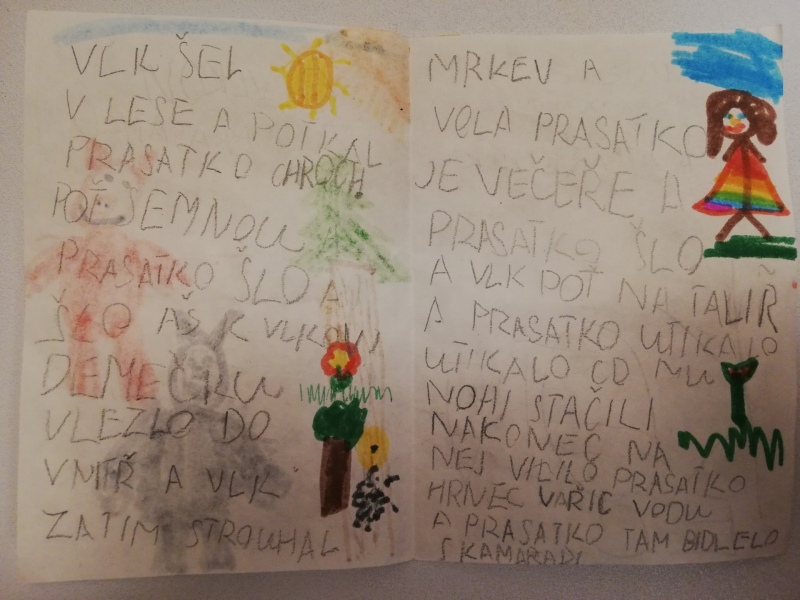 VLK ŠEL
V LESE A POTKAL
PRASATKO CHROCH
POŤ SEMNOU A
PRASATKO ŠLO A
ŠLO AŠ K VLKOVI
DEMEČKU
VLEZLO DO
VNITŘ A VLK
ZATIM STROUHAL
MRKEV A
VOLA PRASATKO
JE VEČEŘE A
PRASATKO ŠLO
A VLK POŤ NA TALIŘ
A PRASATKO UTIKALO
UTIKALO CO MU
NOHI STAČILI
NAKONEC NA
NEJ VICILO PRASATKO
HRNEC VAŘIC VODU
A PRASATKO TAM BIDLELO
SKAMARADI